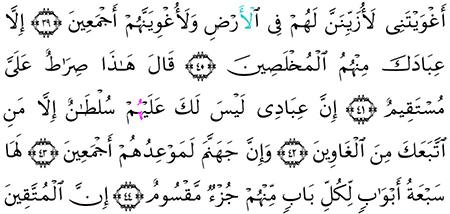 أَغْوَيْتَنِى لَأُزَيِّنَنَّ لَهُمْ فِى ٱلْأَرْضِ وَلَأُغْوِيَنَّهُمْ أَجْمَعِينَ ٣٩ إِلَّا
عِبَادَكَ مِنْهُمُ ٱلْمُخْلَصِينَ ٤٠ قَالَ هَٰذَا صِرَٰطٌ عَلَىَّ
مُسْتَقِيمٌ ٤١ إِنَّ عِبَادِى لَيْسَ لَكَ عَلَيْهِمْ سُلْطَٰنٌ إِلَّا مَنِ
ٱتَّبَعَكَ مِنَ ٱلْغَاوِينَ ٤٢ وَإِنَّ جَهَنَّمَ لَمَوْعِدُهُمْ أَجْمَعِينَ ٤٣ لَهَا
سَبْعَةُ أَبْوَٰبٍ لِّكُلِّ بَابٍ مِّنْهُمْ جُزْءٌ مَّقْسُومٌ ٤٤ إِنَّ ٱلْمُتَّقِينَ